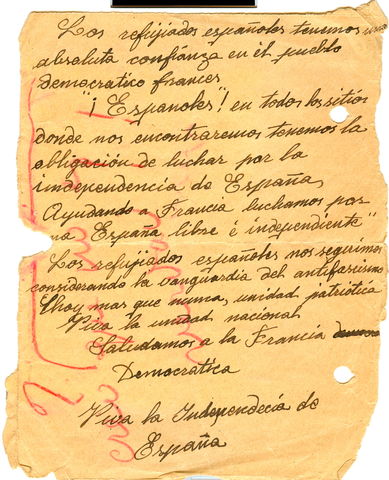 Los refujiados españoles tenemos una
absoluta confianza en él pueblo
democratico frances
"¡Españoles"! en todos los sitios
donde nos encontraremos tenemos la
obligación de luchar por la
independencia de España
Ayudando a Francia luchamos por
una España libre é independiente"
Los refujiados españoles nos seguirmos
considerando la vanguardia del antifascismo
Y hoy mas que nunca, unidad patriótica
Viva la unidad nacional
Saludamos a la Francia
Democratica
Viva la Independecia de
España